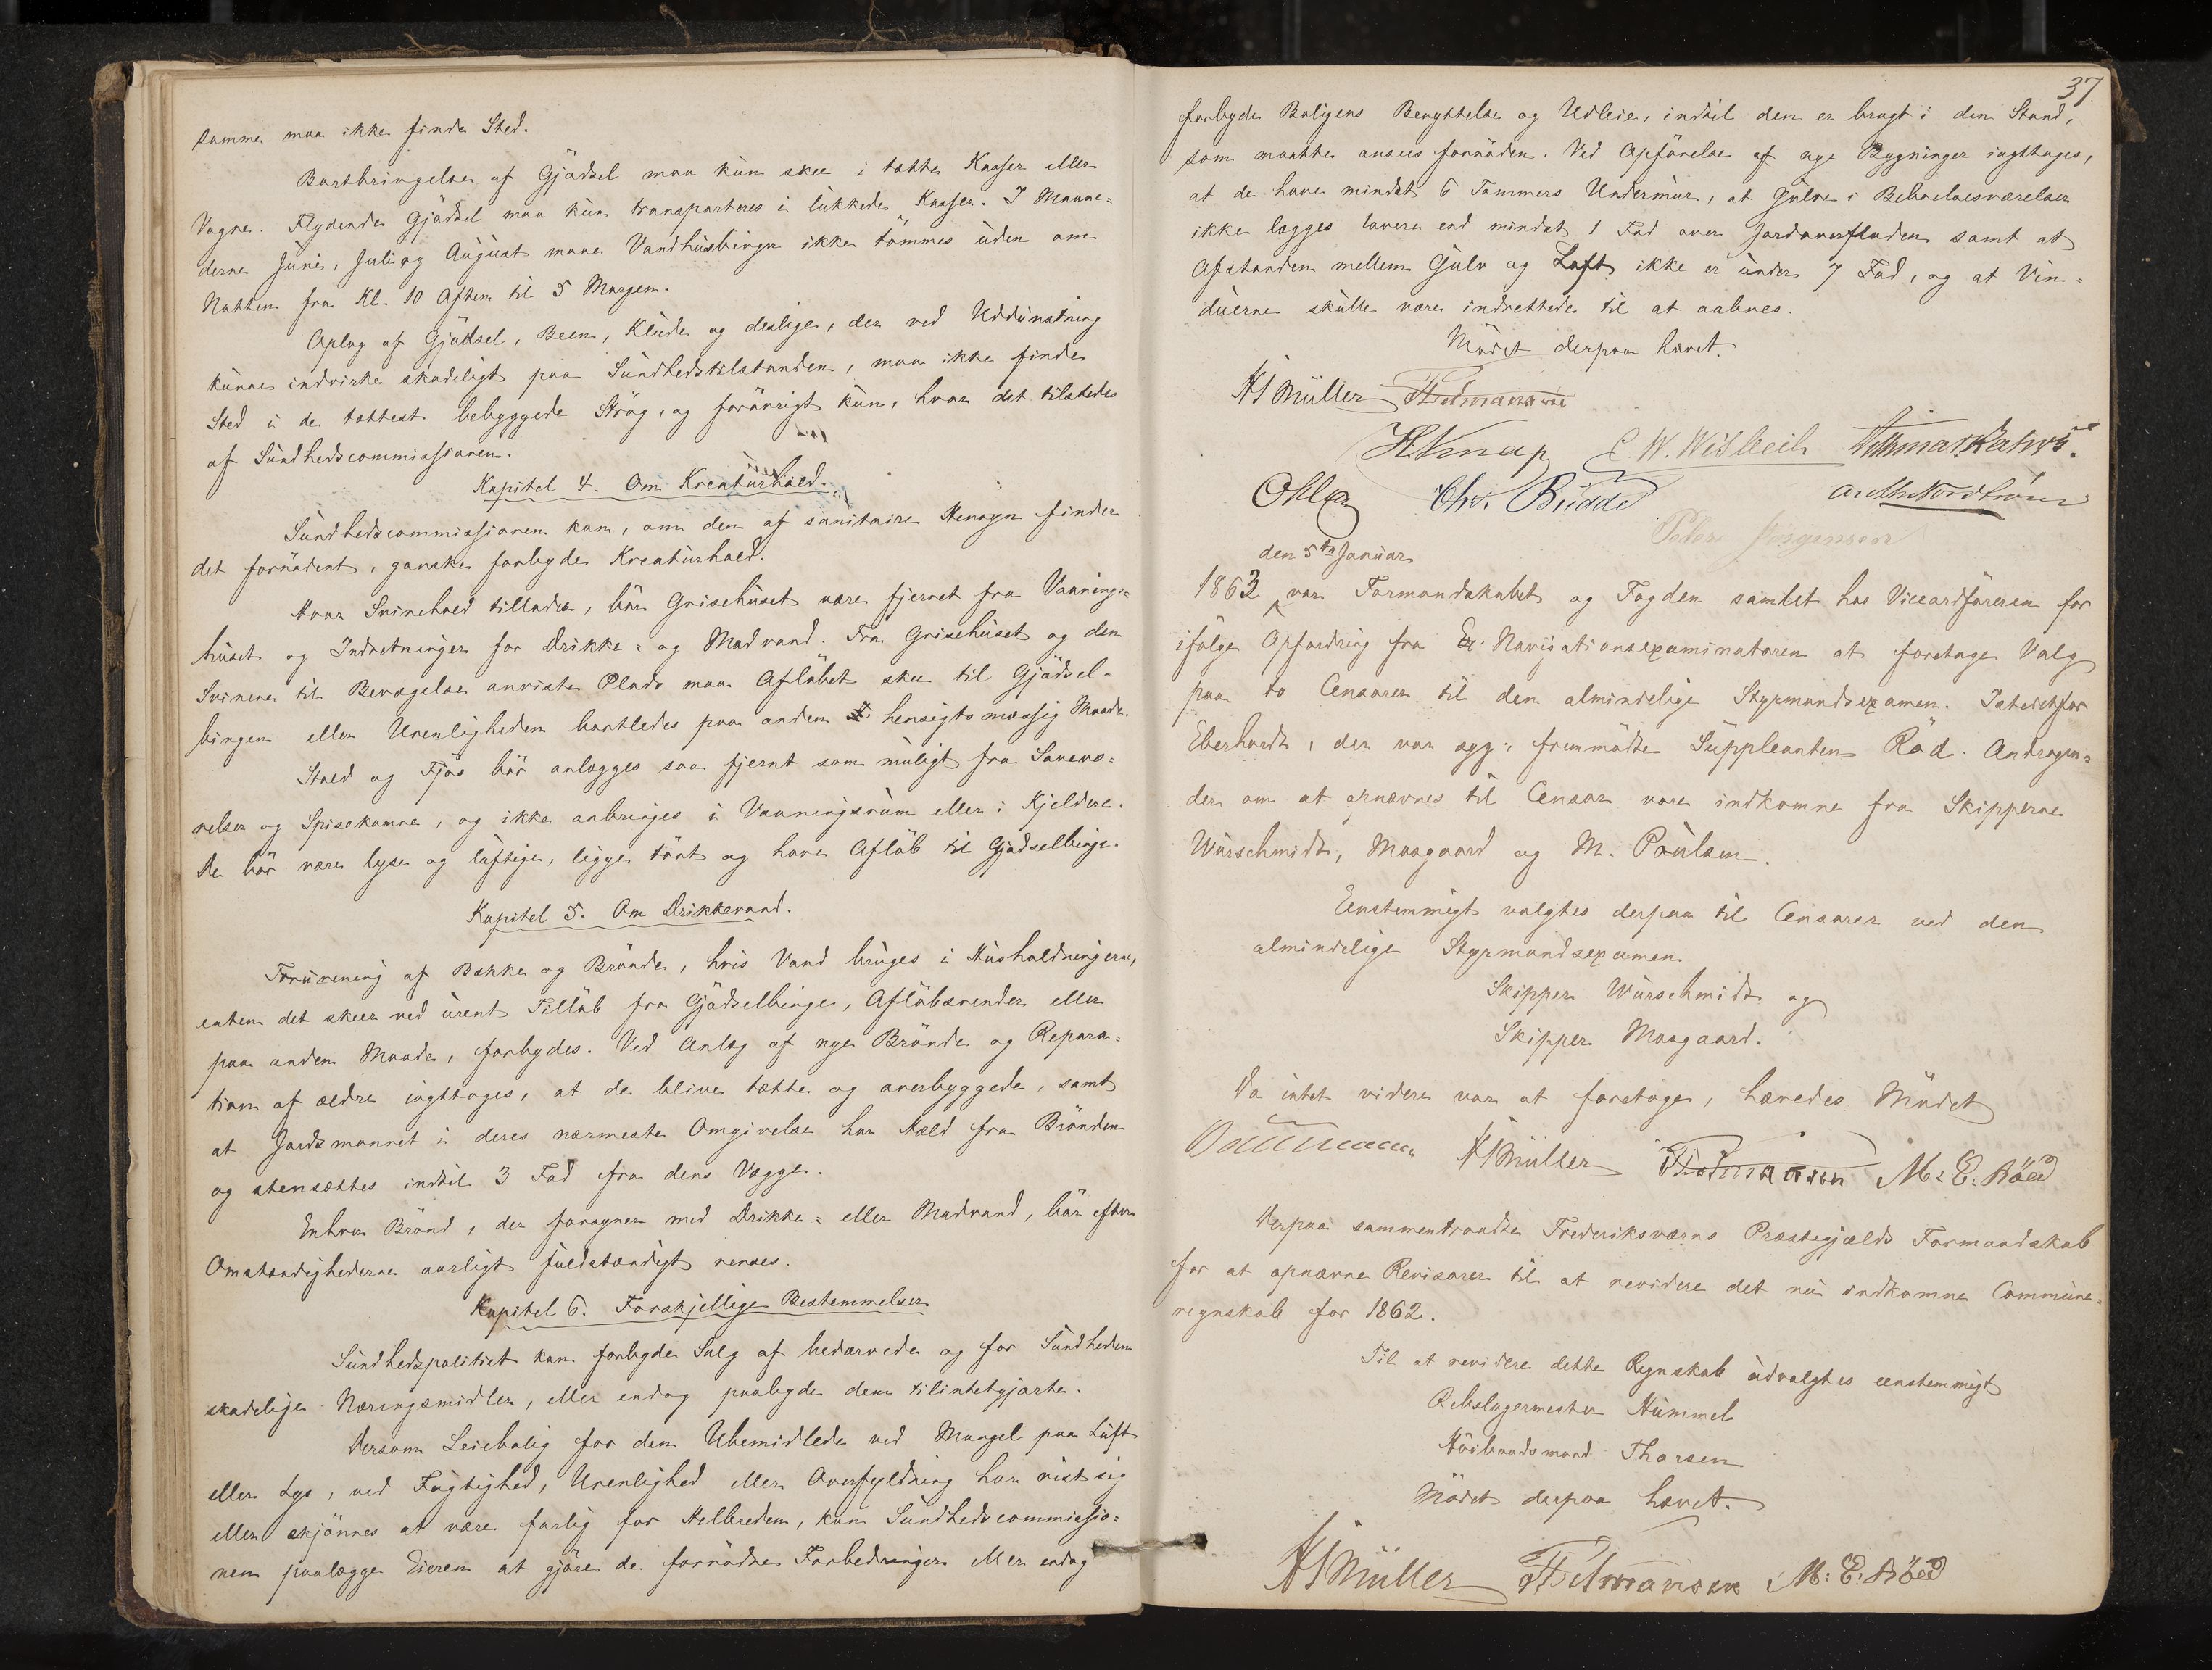 samme maa ikke finde Sted.
Bortbringelse af Gjödsel maa kun skee i tætte Kasser eller
Vogne. Flydende Gjödsel maa kun transporteres i lukkede Kasser. I Maane=
derne Juni, Juli og August maae Vandhusbinger ikke tömmes uden om
Natten fra Kl. 10 Aften til 5 Morgen.
Oplag af Gjödsel, Been, Klude og deslige, der ved Uddunstning
kunne indvirke skadeligt paa Sundhedstilstanden, maa ikke finde
Sted i de tættest bebyggede Strög, og forövrigt kun, hvor det tilstedes
af Sundhedscommissionen.
Kapitel 4. Om Kreaturhold.
Sundhedscommissionen kan, om den af sanitaire Hensyn finder
det fornödent, ganske forbyde Kreaturhold.
Hvor Svinehold tillades, bör Grisehuset være fjernet fra Vaanings=
huset og Indretninger for Drikke= og Madvand. Fra Grisehuset og den
Svinene til Bevægelse anviste Plads maa Aflöbet skee til Gjödsel-
bingen eller Urenligheden bortledes paa anden hensigtsmæssig Maade.
Stald og Fjös bör anlægges saa fjernt som muligt fra Sovevæ=
relser og Spisekamre, og ikke anbringes i Vaaningsrum eller i Kjeldere.
De bör være lyse og luftige, ligge tört og have Aflöb til Gjödselbinge.
Kapitel 5. Om Drikkevand.
Forurening af Bække og Brönde, hvis Vand bruges i Husholdningerne,
enten det skeer ved urent Tillöb fra Gjödselbinge, Aflöbsrender eller
paa anden Maade, forbydes. Ved Anlæg af nye Brönde og Repara=
tion af ældre iagttages, at de blive tætte og overbyggede, samt
at Jordsmonnet i deres nærmeste Omgivelse har Hæld fra Brönden
og stensættes indtil 3 Fod fra dens Vægge.
Enhver Brönd, der forsyner med Drikke= eller Madvand, bör efter
Omstændighederne aarligt fuldstændigt renses.
Kapitel 6. Forskjellige Bestemmelser.
Sundhedspolitiet kan forbyde Salg af bedærvede og for Sundheden
skadelige Næringsmidler, eller endog paabyde dem tilintetgjorte.
Dersom Leiebolig for den Ubemidlede ved Mangel paa Luft
eller Lys, ved Fugtighed, Urenlighed eller Overfyldning har vist sig
eller skjönnes at være farlig for Helbreden, kan Sundhedscommissio=
nen paalægge Eieren at gjöre de fornödne Forbedringer eller endog
37.
forbyde Boligens Benyttelse og Udleie, indtil den er bragt i den Stand,
som maatte ansees fornöden. Ved Opförelse af nye Bygninger iagttages,
at de have mindst 6 Tommers Undermur, at Gulve i Beboelsesværelser
ikke lægges lavere end mindst 1 Fod over Jordoverfladen samt at
Afstanden mellem Gulv og Loft ikke er under 7 Fod, og at Vin=
duerne skulle være indrettede til at aabnes.
Mödet derpaa hævet.
HJMüller
HKnap C. W. Wisbech
Ohlsen Chr. Budde
Peder Jörgensen
den 5te Januar
1863 var Formandskabet og Fogden samlet hos Viceordföreren for
ifölge Opfordring fra Navigationsexaminatoren at foretage Valg
paa to Censorer til den almindelige Styrmandsexamen. Istedetfor
Eberhardt, der var syg, fremmödte Suppleanten Röd. Andragen=
der om at opnævnes til Censor vare indkomne fra Skipperne
Würschmidt, Maagaard og M. Poulsen.
Eenstemmigt valgtes derpaa til Censorer ved den
almindelige Styrmandsexamen
Skipper Würschmidt og
Skipper Maagaard.
Da intet videre var at foretage, hævedes Mödet
HJMüller M: E. Röed
Derpaa sammentraadte Frederiksværns Præstegjælds Formandskab
for at opnævne Revisorer til at revidere det nu indkomne Commune=
regnskab for 1862.
Til at revidere dette Regnskab udvalgtes eenstemmigt
Rebslagermester Hummel
Höibaadsmand Thorsen
Mödet derpaa hævet.
HJMüller M: E: Röed